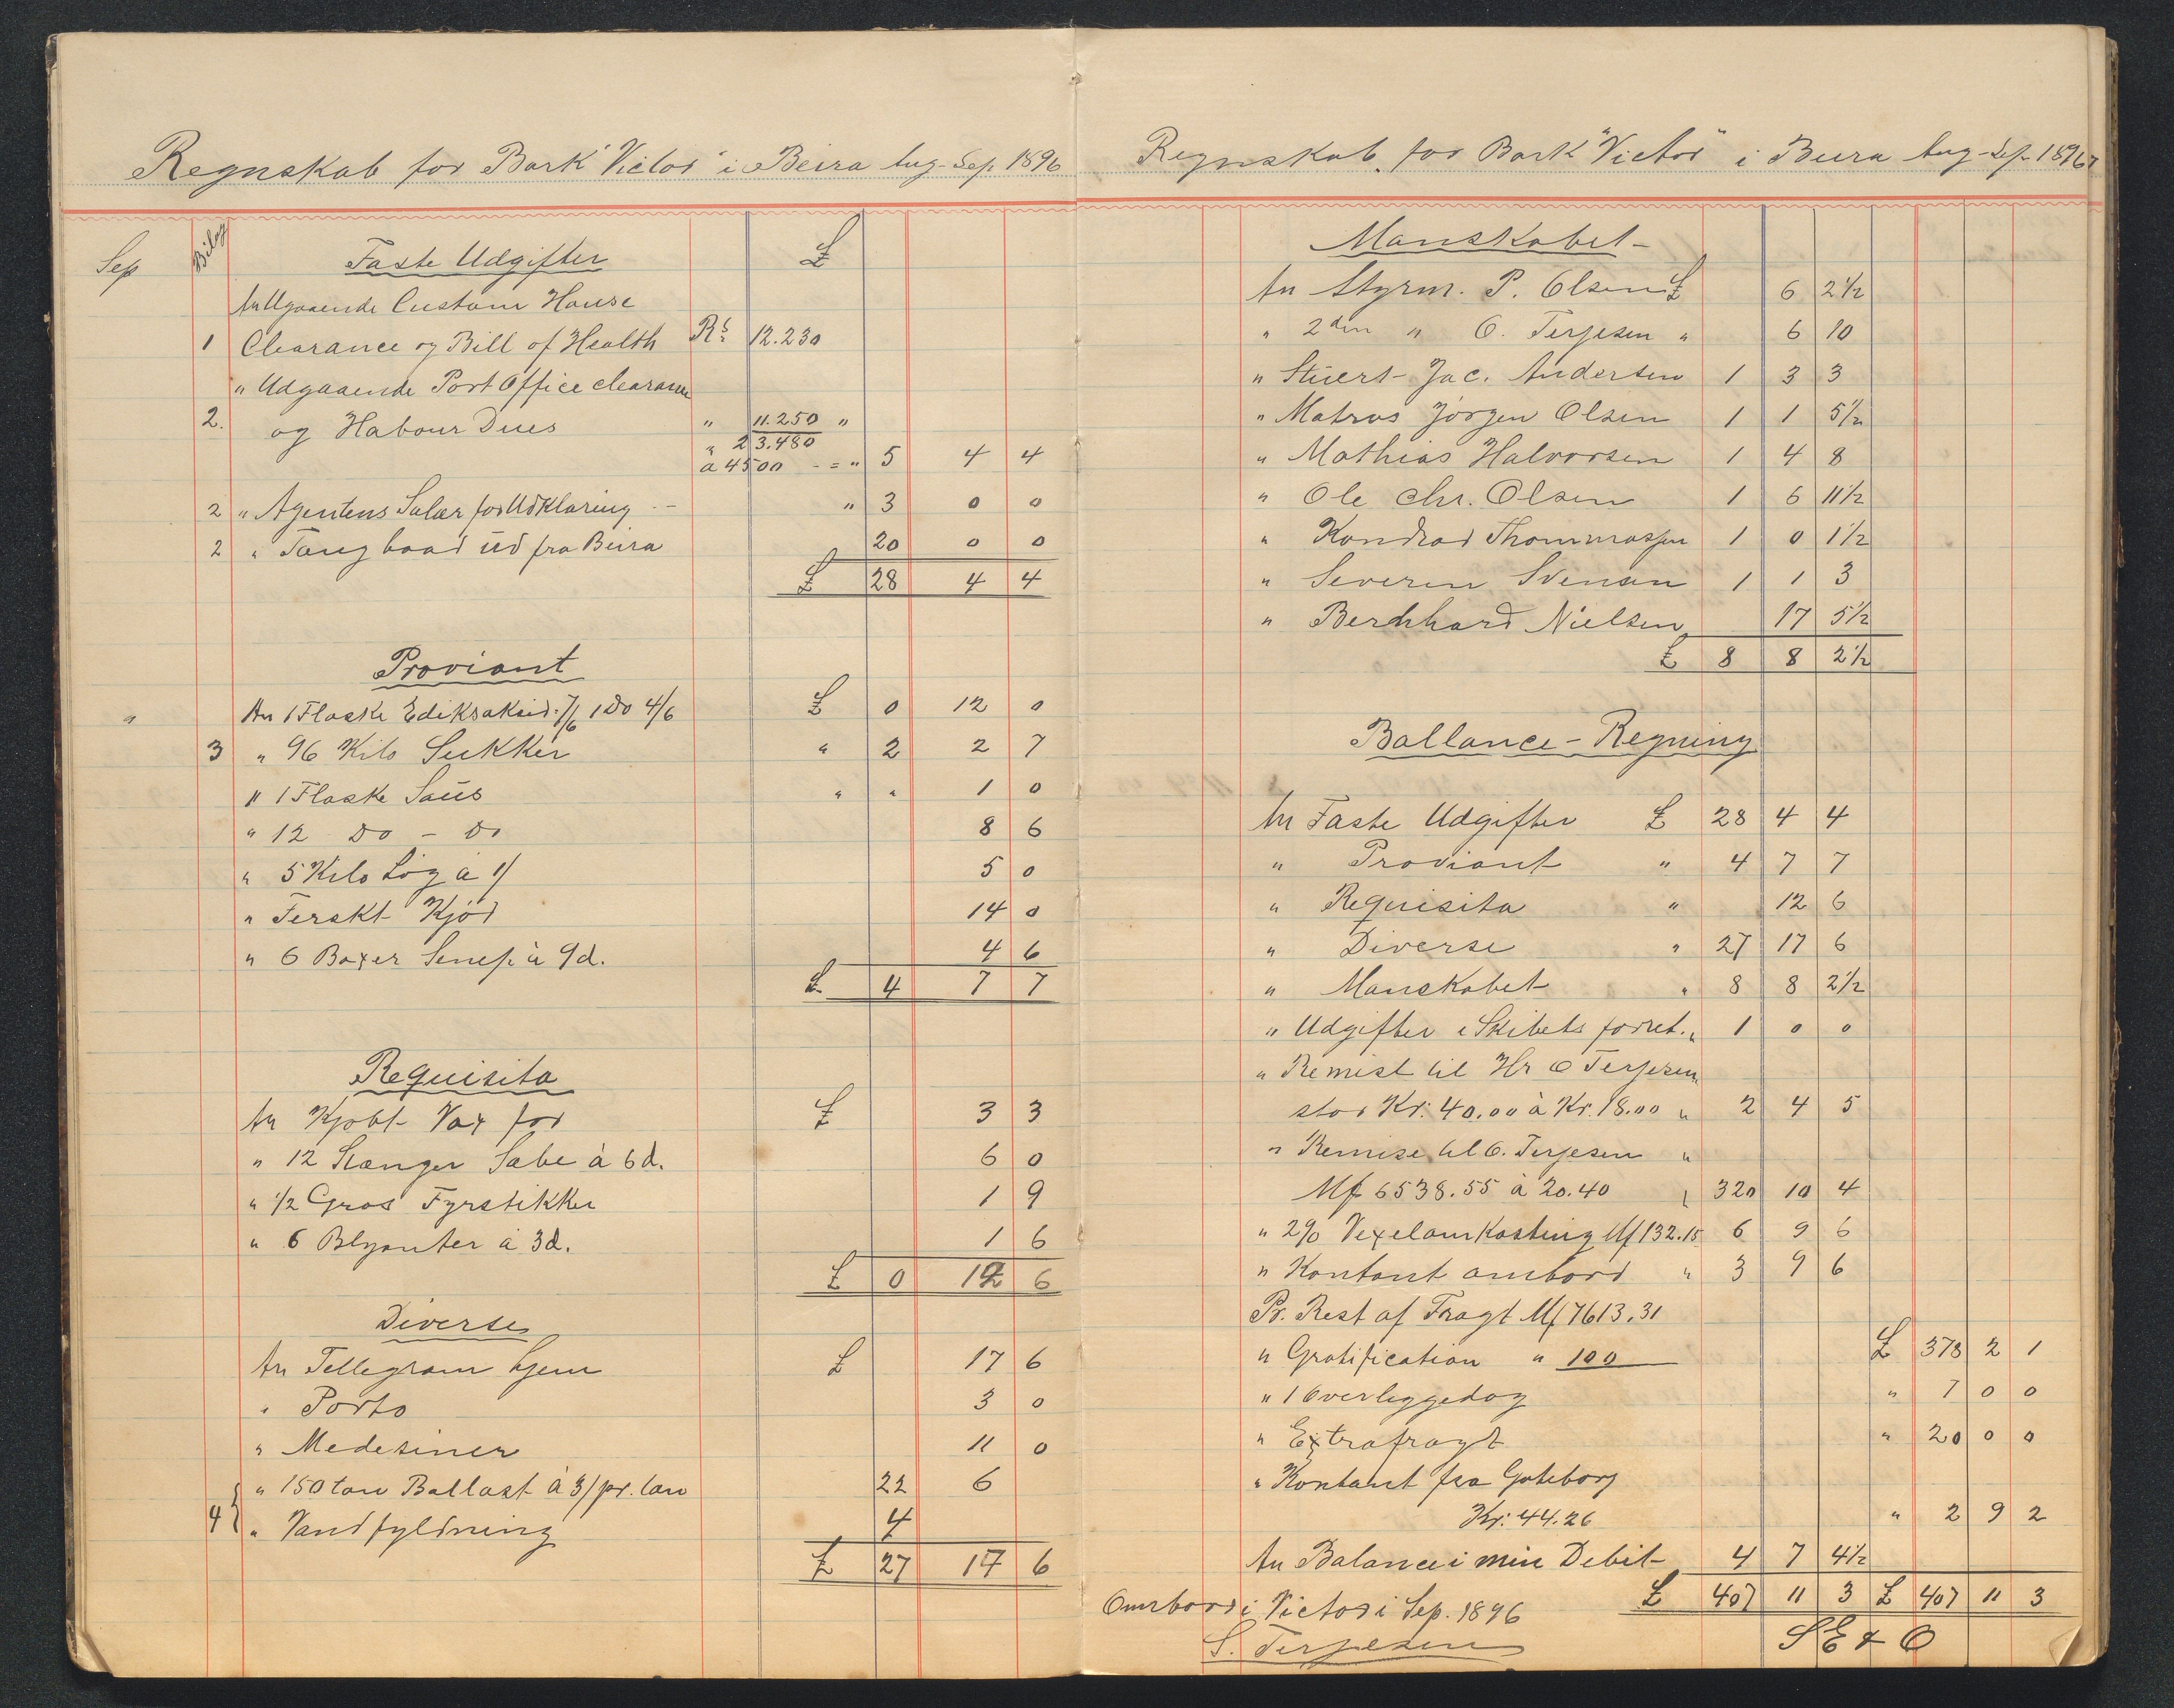 Regnskab for Bark "Victor" i Beira Aug-Sep. 1896
Sep Bilag Faste Udgifter £
An Udgaaende Custom House
1 Clearance og Bill of Health Rs 12.230
" Udgaaende Port Office clearance
2. og Habour Dues " 11.250 "
" 23.480
a 4500 - = " 5 4 4
2 " Agentens Salær for Udklaring - - " 3 0 0
2 " Taugbaad ud fra Beira 20 0 0
£ 28 4 4
Proviant
" An 1 Flaske Ediksaksid. 7/6 1 Do 4/6 £ 0 12 0
3 " 96 Kilo Sukker " 2 2 7
" 1 Flaske Saus " " 1 0
" 12 Do - Do 8 6
" 5 Kilo Løg à 1/ 5 0
" Ferskt Kjød 14 0
" 6 Boxer Senep à 9d. 4 6
£ 4 7 7
Requisita
An Kjøbt Vax for £ 3 3
" 12 Stænger Sæbe à 6d. 6 0
" 1/2 Gros Fyrstikker 1 9
" 6 Blyanter à 3d. 1 6
£ 0 12 6
Diverse
An Tellegram hjem £ 17 6
" Porto 3 0
" Medesiner 11 0
" 150 ton Ballast à 3/ pr. ton 22 6
4 " Vandfyldning 4
£ 27 17 6
Regnskab for Bark "Victor" i Beira Aug-Sep. 1896
Manskabet
An Styrm. P. Olsen £ 6 2 1/2
" 2den " O. Terjesen " 6 10
" Stuert Jac. Andersen 1 3 3
" Matros Jørgen Olsen 1 1 5 1/2
" Mathias Halvorsen 1 4 8
" Ole Chr. Olsen 1 6 11 1/2
" Kondrad Thommassen 1 0 1 1/2
" Severin Svensen 1 1 3
" Bernhard Nielsen 17 5 1/2
£ 8 8 2 1/2
Ballance-Regning
An Faste Udgifter £ 28 4 4
" Proviant " 4 7 7
" Requisita " 12 6
" Diverse " 27 17 6
" Manskabet " 8 8 2 1/2
" Udgifter i Skibets forret. " 1 0 0
" Remist til Hr O Terjesen
stor Kr. 40.00 à Kr. 18.00 " 2 4 5
" Remise til O. Terjesen "
Mk 6538.55 à 20.40 " 320 10 4
" 2% Vexelomkosting Mk 132.15 6 9 6
" Kontant ombord " 3 9 6
Pr. Rest af Fragt Mk 7613.31
" Gratification " 100 £ 378 2 1
" 1 Overliggedag " 7 0 0
" Extrafragt " 20 0 0
" Kontant fra Gøteborg
Kr. 44.26 " 2 9 2
An Balance i min Debit 4 7 4 1/2
£ 407 11 3 £ 407 11 3
Ombord i Victor i Sep. 1896
S. Terjesen
S E & O